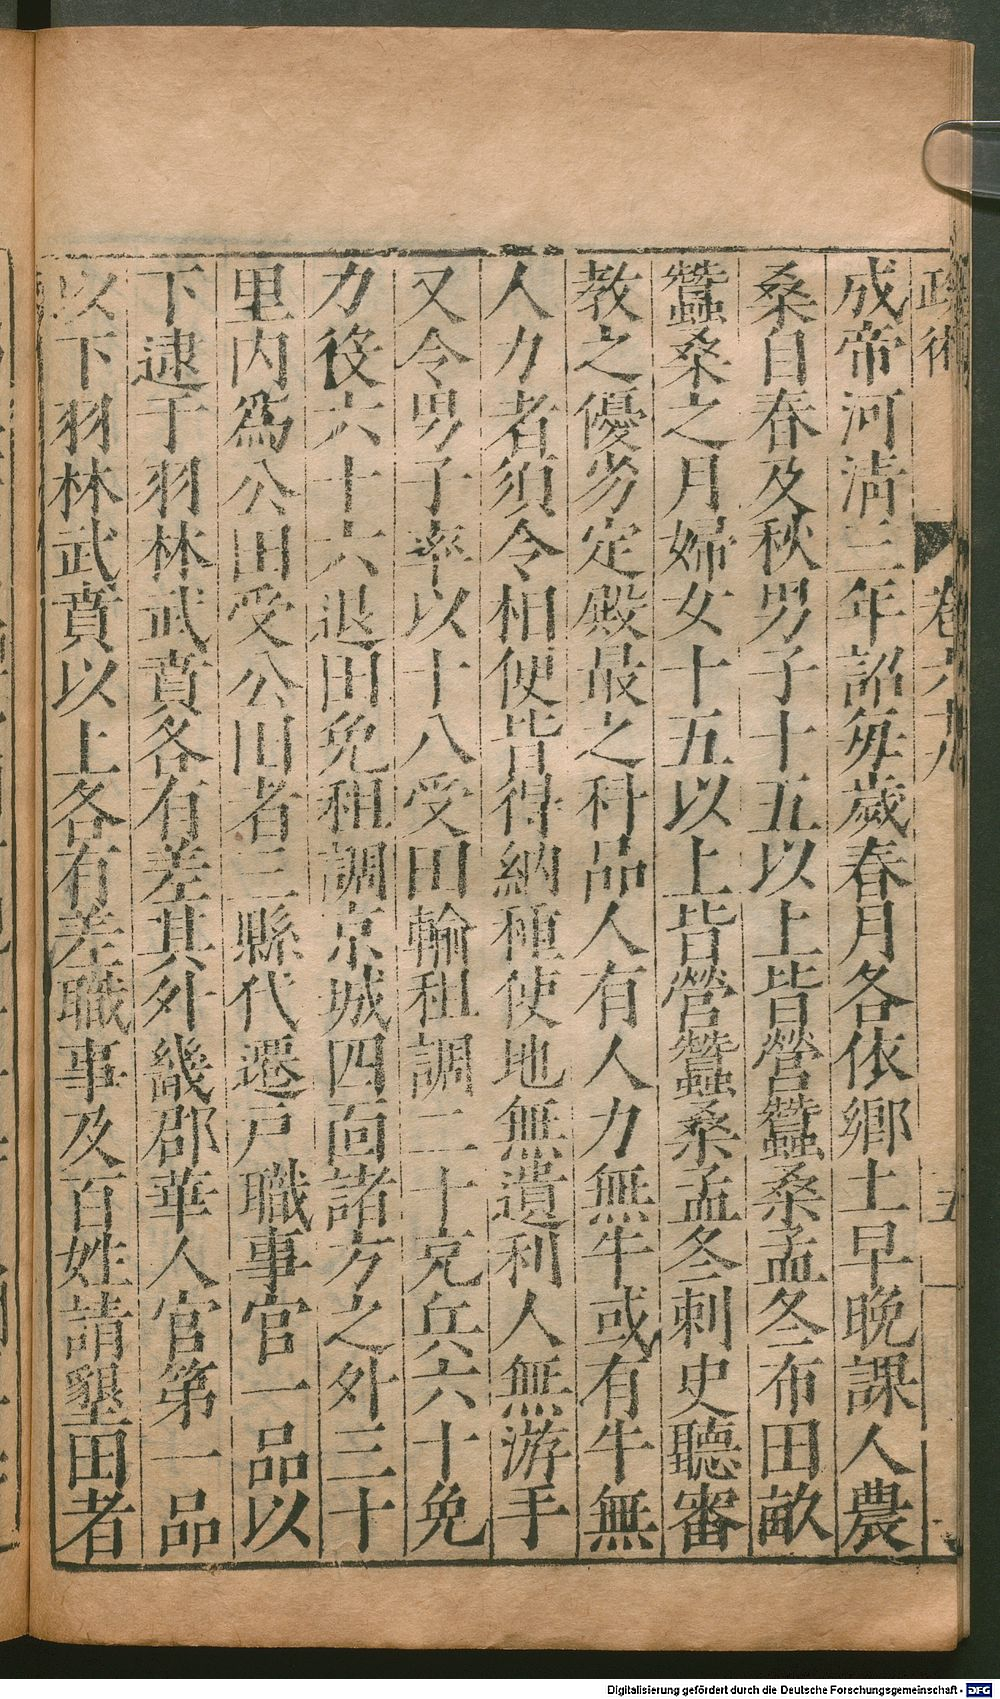 政術 卷六十九 五
成帝河淸三年詔每歲春月各依鄉土早晚課人農
桑自春及秋男子十五以上皆營蠶桑孟冬布田畝
蠶桑之月婦女十五以上皆營蠶桑孟冬刺史聽審
教之優劣定殿最之科品人有人力無牛或有牛無
人力者須令相便皆得納種使地無遺利人無游手
又令男子率以十八受田輸租調二十充兵六十免
力役六十六退田免租調京城四面諸方之外三十
里內爲公田受公田者三縣代遷戶職事官一品以
下逮于羽林武賁各有差其外畿郡華人官第一品
以下羽林武賁以上各有差職事及百姓請墾田者
Digitalisierung gefördert durch die Deutsche Forschungsgemeinschaft - DFG